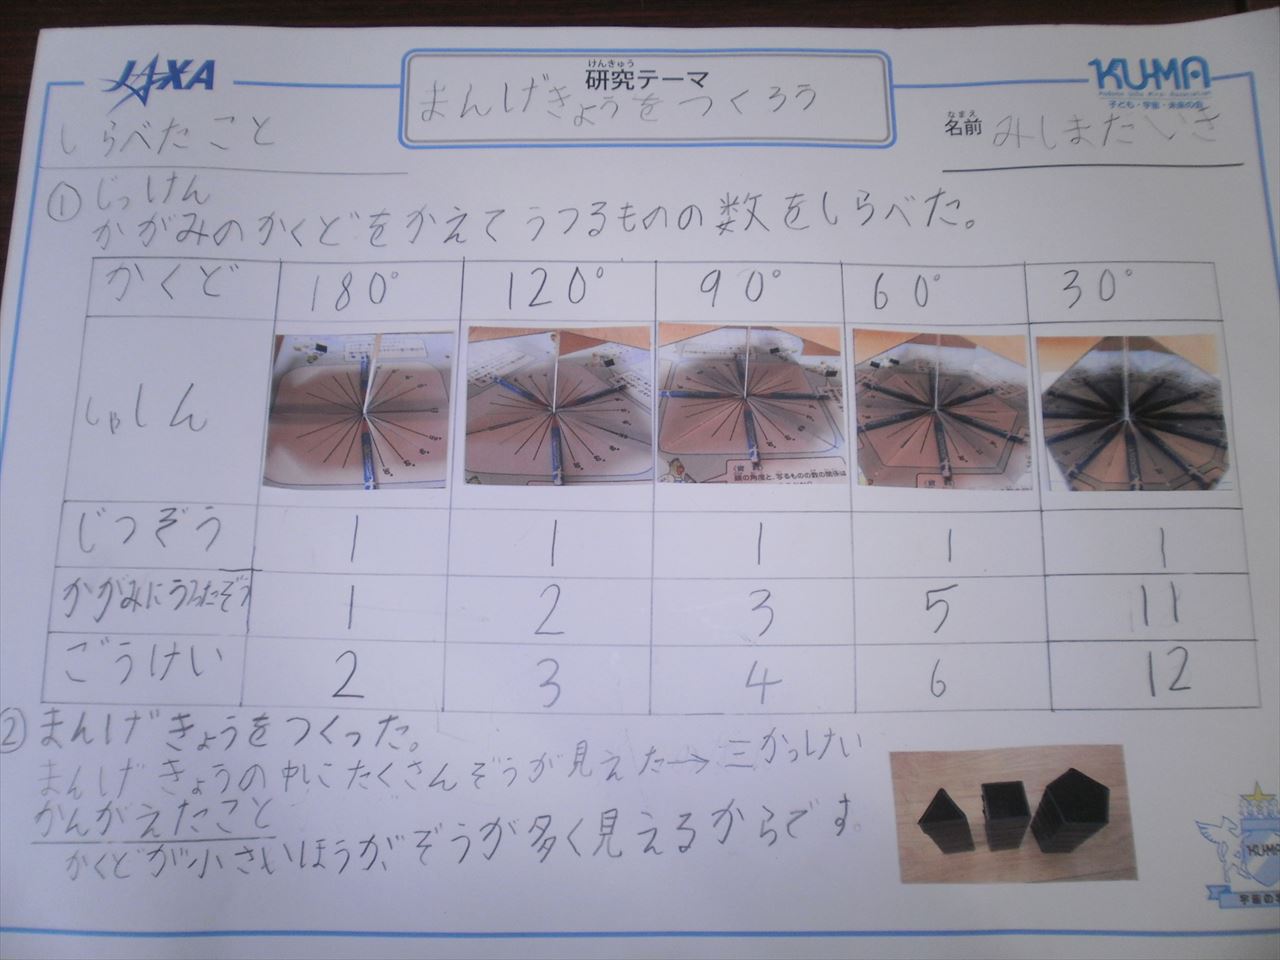 JAXA
けんきゅう
研究テーマ
まんげきょうをつくろう
KU-MA
子ども・宇宙・未来の会
なまえ
名前 みしまたいき
しらべたこと
① じっけん
かがみのかくどをかえてうつるものの数をしらべた。
かくど 180° 120° 90° 60° 30°
しゃしん
じつぞう 1 1 1 1 1
かがみにうつったぞう 1 2 3 5 11
ごうけい 2 3 4 6 12
② まんげきょうをつくった。
まんげきょうの中にたくさんぞうが見えた→三かっけい
かんがえたこと
かくどが小さいほうが、ぞうが多く見えるからです。
KUMA